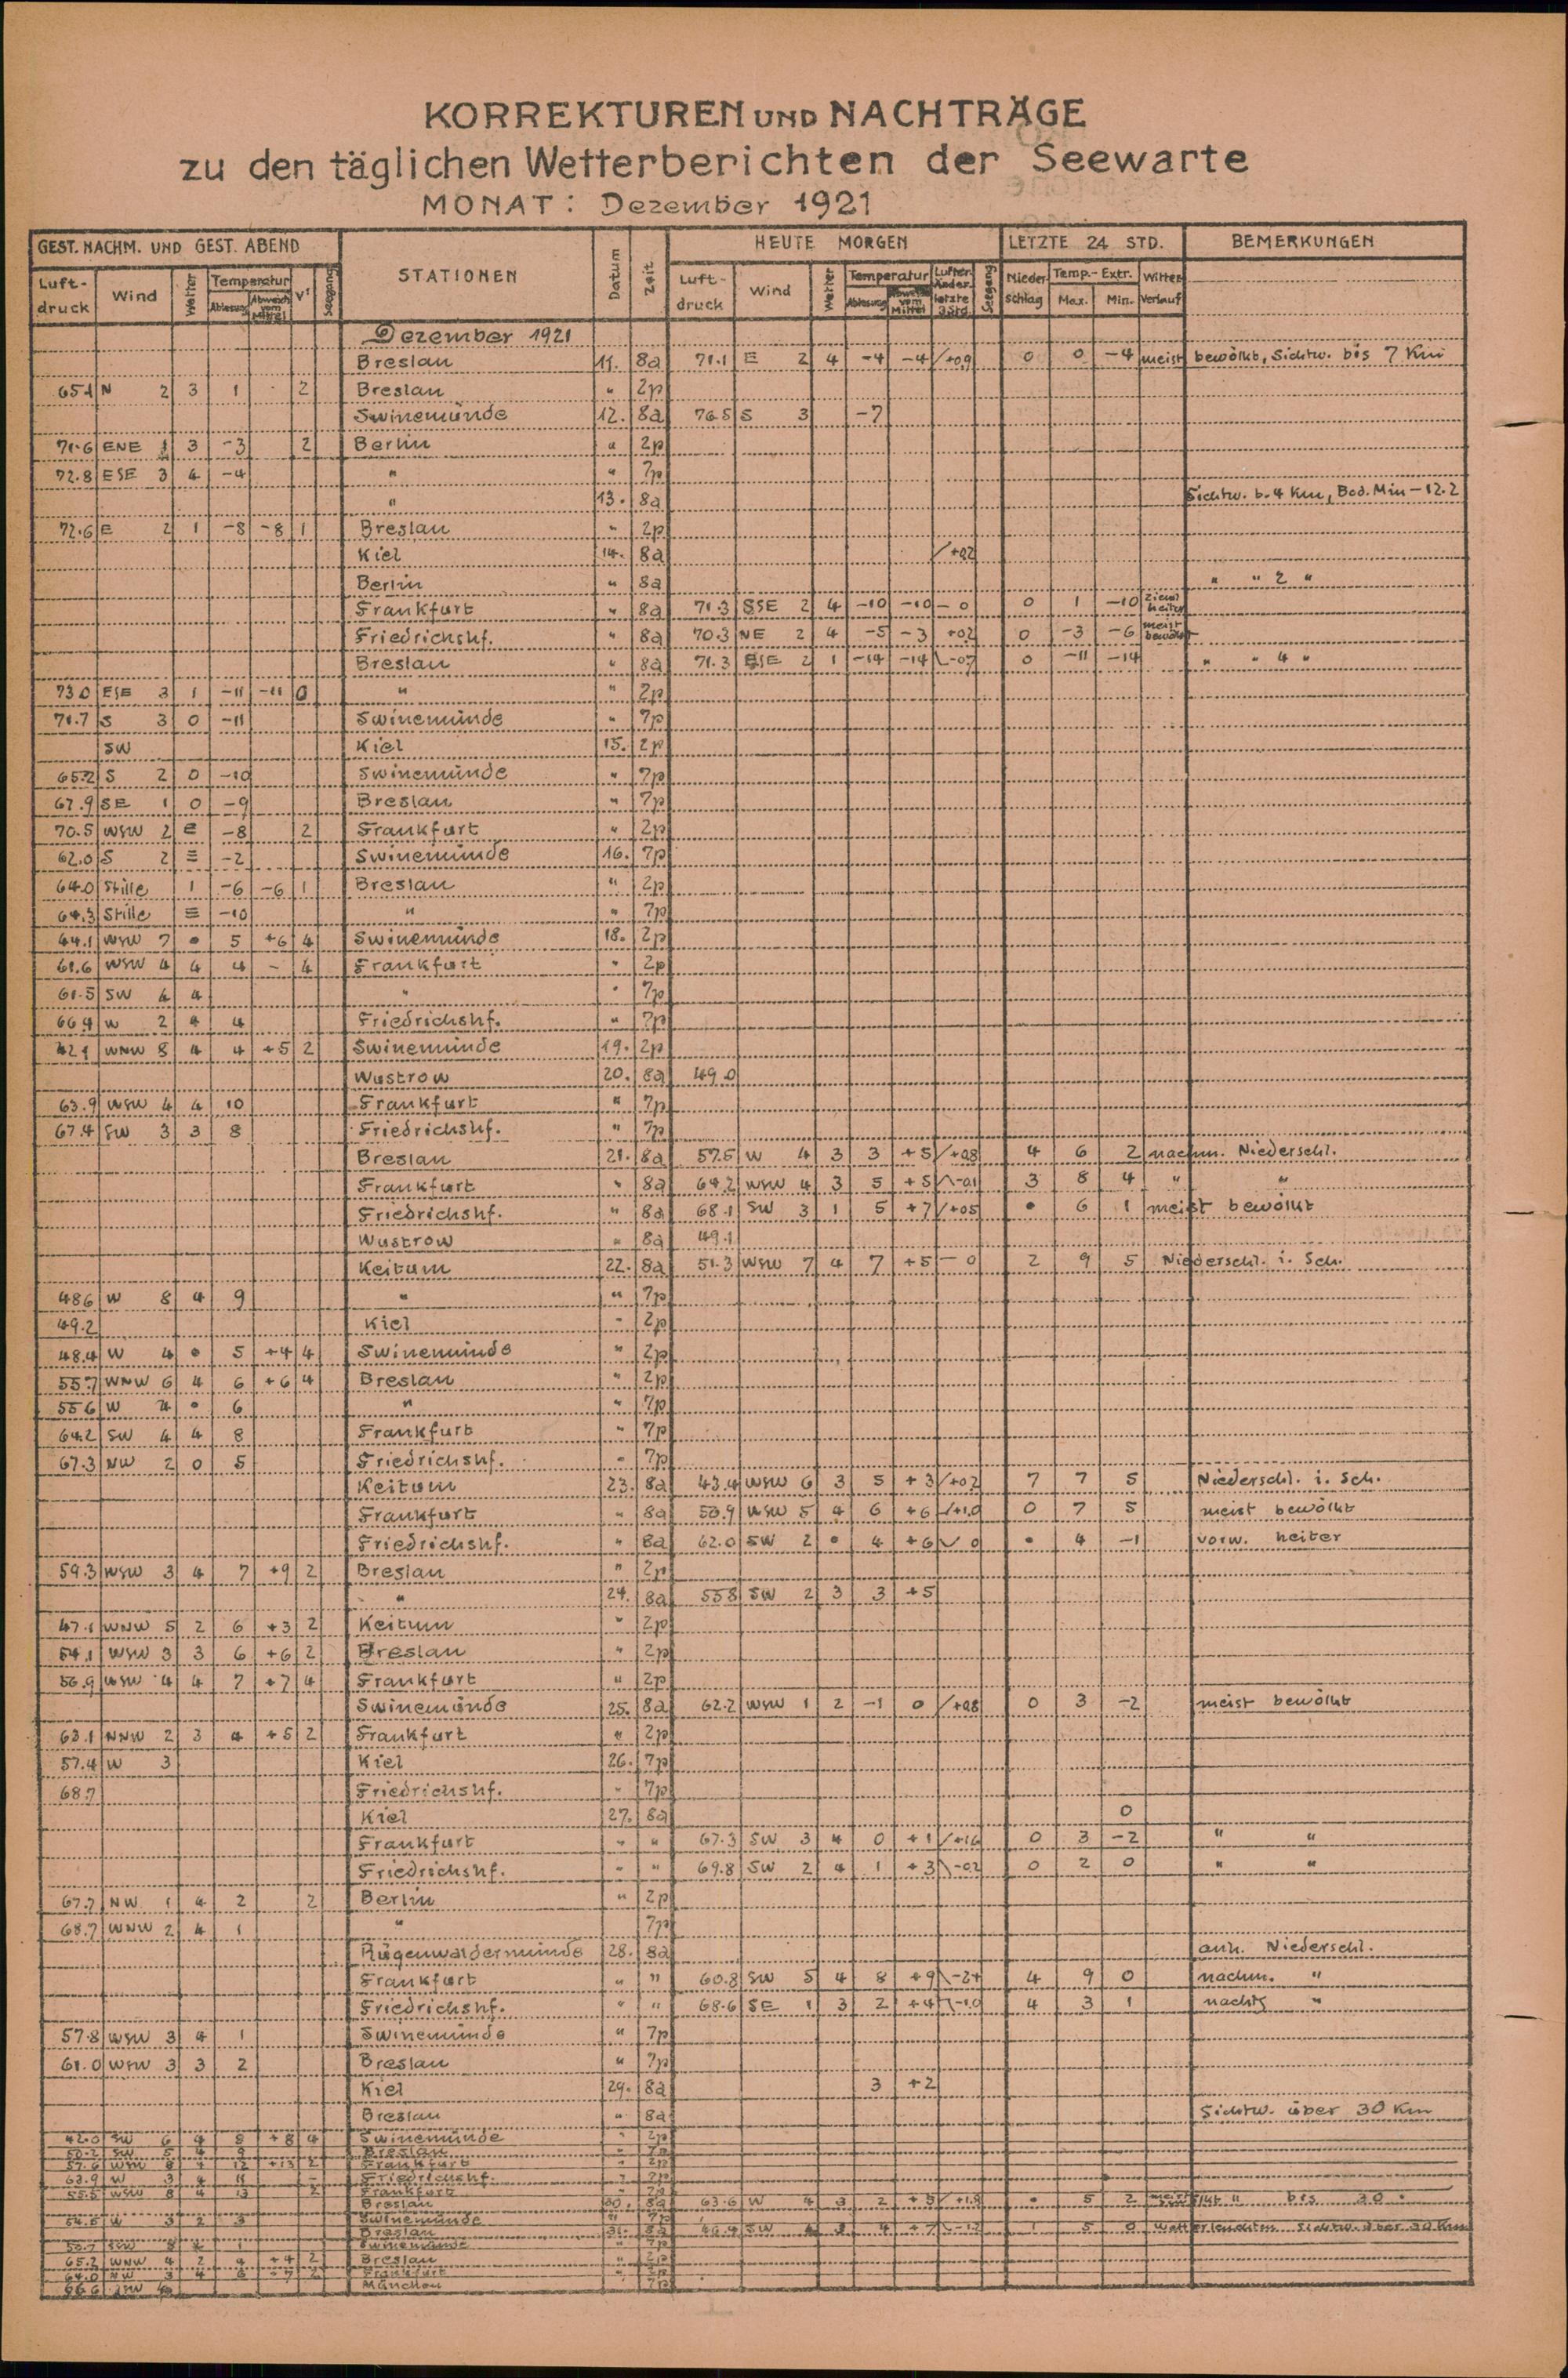 KORREKTUREN UND NACHTRÄGE
zu den täglichen Wetterberichten der Seewarte
MONAT: Dezember 1921
GEST. NACHM. UND GEST. ABEND STATIONEN Datum Zeit HEUTE MORGEN LETZTE 24 STD. BEMERKUNGEN
Luft-druck Wind Wetter Temperatur Ablesung Abweich vom Mittel V' Seegang Luft-druck Wind Wetter Temperatur Ablesung Abweich vom Mittel Luftdr. Änder. letzte 3 Std. Seegang Niederschlag Temp.-Extr. Max. Min. Witter Verlauf
Dezember 1921
Breslau 11. 8a 71.1 E 2 4 -4 -4 /+0.9 0 0 -4 meist bewölkt, Sichtw. bis 7 Km
65.1 N 2 3 1 2 Breslau " 2p
Swinemünde 12. 8a 76.5 S 3 -7
71.6 ENE 1 3 -3 2 Berlin " 2p
72.8 ESE 3 4 -4 " " 7p
" 13. 8a Sichtw. b. 4 Km, Bod. Min -12.2
72.6 E 2 1 -8 -8 1 Breslau " 2p
Kiel 14. 8a /+0.2
Berlin " 8a " " 2 "
Frankfurt " 8a 71.3 SSE 2 4 -10 -10 - 0 0 1 -10 zieml heiter
Friedrichshf. " 8a 70.3 NE 2 4 -5 -3 +0.2 0 -3 -6 meist bewölkt
Breslau " 8a 71.3 ESE 2 1 -14 -14 \-0.7 0 -11 -14 " " 4 "
73.0 ESE 3 1 -11 -11 0 " " 2p
71.7 S 3 0 -11 Swinemünde " 7p
SW Kiel 15. 2p
65.2 S 2 0 -10 Swinemünde " 7p
67.9 SE 1 0 -9 Breslau " 7p
70.5 WSW 2 = -8 2 Frankfurt " 2p
62.0 S 2 ≡ -2 Swinemünde 16. 7p
64.0 Stille 1 -6 -6 1 Breslau " 2p
64.3 Stille ≡ -10 " " 7p
44.1 WSW 7 • 5 +6 4 Swinemünde 18. 2p
61.6 WSW 4 4 4 - 4 Frankfurt " 2p
61.5 SW 4 4 " " 7p
66.4 W 2 4 4 Friedrichshf. " 7p
42.1 WNW 8 4 4 +5 2 Swinemünde 19. 2p
Wustrow 20. 8a 49.0
63.9 WSW 4 4 10 Frankfurt " 7p
67.4 SW 3 3 8 Friedrichshf. " 7p
Breslau 21. 8a 57.5 W 4 3 3 +5 /+0.8 4 6 2 nachm. Niederschl.
Frankfurt " 8a 64.2 WSW 4 3 5 +5 /\-0.1 3 8 4 " "
Friedrichshf. " 8a 68.1 SW 3 1 5 +7 /+0.5 • 6 1 meist bewölkt
Wustrow " 8a 49.1
Keitum 22. 8a 51.3 WSW 7 4 7 +5 - 0 2 9 5 Niederschl. i. Sch.
48.6 W 8 4 9 " " 7p
49.2 Kiel " 2p
48.4 W 4 • 5 +4 4 Swinemünde " 2p
55.7 WNW 6 4 6 +6 4 Breslau " 2p
55.6 W 4 • 6 " " 7p
64.2 SW 4 4 8 Frankfurt " 7p
67.3 NW 2 0 5 Friedrichshf. " 7p
Keitum 23. 8a 43.4 WSW 6 3 5 +3 /+0.2 7 7 5 Niederschl. i. Sch.
Frankfurt " 8a 58.9 WSW 5 4 6 +6 /+1.0 0 7 5 meist bewölkt
Friedrichshf. " 8a 62.0 SW 2 • 4 +6 \/ 0 • 4 -1 vorw. heiter
59.3 WSW 3 4 7 +9 2 Breslau " 2p
" 24. 8a 55.8 SW 2 3 3 +5
47.1 WNW 5 2 6 +3 2 Keitum " 2p
54.1 WSW 3 3 6 +6 2 Breslau " 2p
56.9 WSW 4 4 7 +7 4 Frankfurt " 2p
Swinemünde 25. 8a 62.2 WSW 1 2 -1 0 /+0.8 0 3 -2 meist bewölkt
63.1 NNW 2 3 4 +5 2 Frankfurt " 2p
57.4 W 3 Kiel 26. 7p
68.7 Friedrichshf. " 7p
Kiel 27. 8a 0
Frankfurt " " 67.3 SW 3 4 0 +1 /+1.6 0 3 -2 " "
Friedrichshf. " " 69.8 SW 2 4 1 +3 \-0.2 0 2 0 " "
67.7 NW 1 4 2 2 Berlin " 2p
68.7 WNW 2 4 1 " 7p
Rügenwaldermünde 28. 8a anh. Niederschl.
Frankfurt " " 60.8 SW 5 4 8 +9 \-2.4 4 9 0 nachm. "
Friedrichshf. " " 68.6 SE 1 3 2 +4 \-1.0 4 3 1 nachts "
57.8 WSW 3 4 1 Swinemünde " 7p
61.0 WSW 3 3 2 Breslau " 7p
Kiel 29. 8a 3 +2
Breslau " 8a Sichtw. über 30 Km
42.0 SW 6 4 8 +8 4 Swinemünde " 2p
50.2 SW 5 4 9 Breslau " 7p
57.6 WSW 8 12 +13 2 Frankfurt " 2p
62.9 W 3 4 11 - Friedrichshf. " 2p
55.5 WSW 8 4 13 2 Frankfurt " 7p
Breslau 30. 8a 63.6 W 4 3 2 +5 /+1.8 • 5 2 " bis 30 "
54.5 W 3 2 3 Swinemünde " 7p
Breslau 31. 8a SW 4 +7 1 5 0 Wetterleuchten Sichtw. über 30 Km
Swinemünde " 7p
65.2 WNW 4 2 4 +4 2 Breslau " 2p
64.0 NW 3 4 2 Frankfurt " 2p
66.6 München " 7p